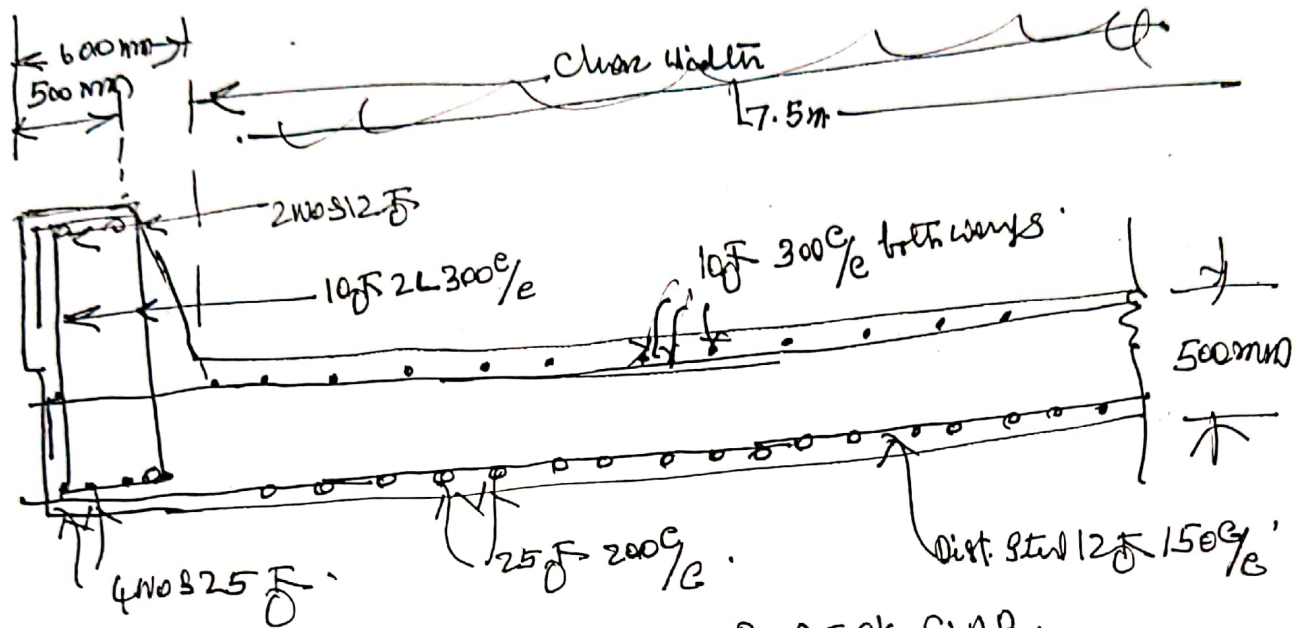 600mm
500mm
Clear Width
7.5m
2nos 12
10 2L 300 c/c
10 300 c/c both ways
500mm
4nos 25
25 200 c/c
Dist. Steel 12 150 c/c
DECK SLAB